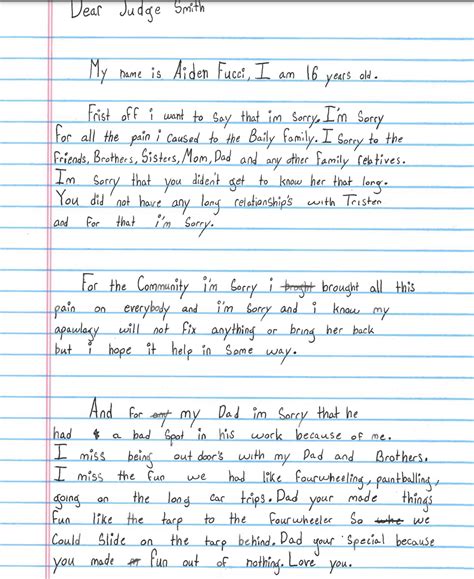 Dear Judge Smith
My name is Aiden Fucci, I am 16 years old.
Frist off i want to say that im sorry. I'm Sorry
For all the pain i caused to the Baily Family. I Sorry to the
Friends, Brothers, Sisters, Mom, Dad and any other Family reletives.
Im Sorry that you dident get to know her that long.
You did not have any long relationship's with Tristen
and For that i'm Sorry.
For the Community i'm Sorry i broght brought all this
pain on everybody and i'm Sorry and i know my
apawlagy will not fix anything or bring her back
but i hope it help in Some way.
And For my Dad im Sorry that he
had a bad Spot in his work because of me.
I miss being out door's with my Dad and Brothers.
I miss the fun we had like fourwheeling, paintballing,
going on the long car trips. Dad your made things
Fun like the tarp to the Fourwheeler So we
Could Slide on the tarp behind. Dad your Special because
you made Fun out of nothing. Love you.